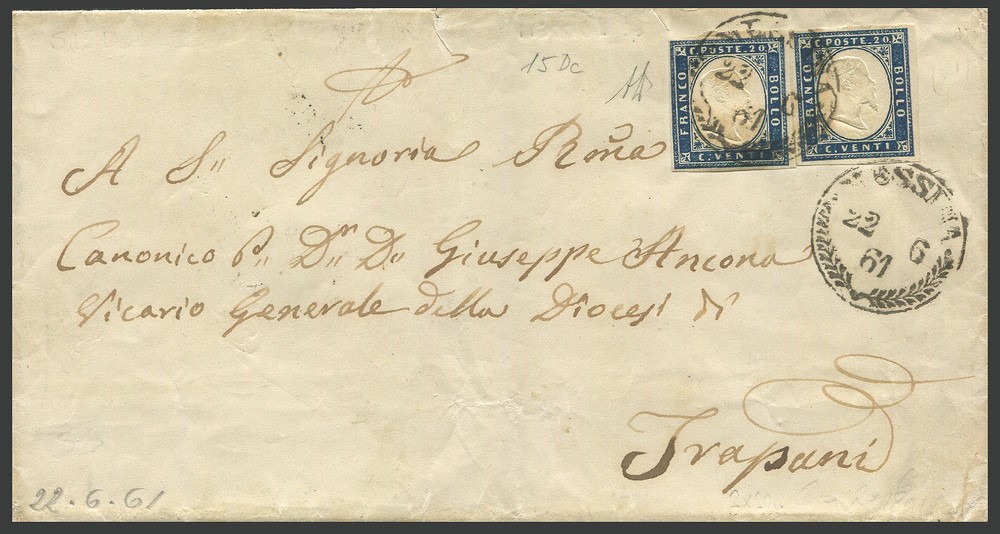 15Dc
C. POSTE. 20.
FRANCO
BOLLO
C. VENTI
C. POSTE. 20.
FRANCO
BOLLO
C. VENTI
22
61
A S.. Signoria Rm̃a
Canonico P.. Dn.. D.. Giuseppe Ancona
Vicario Generale della Diocesi di
Trapani
MESSINA
22 6
61
22.6.61